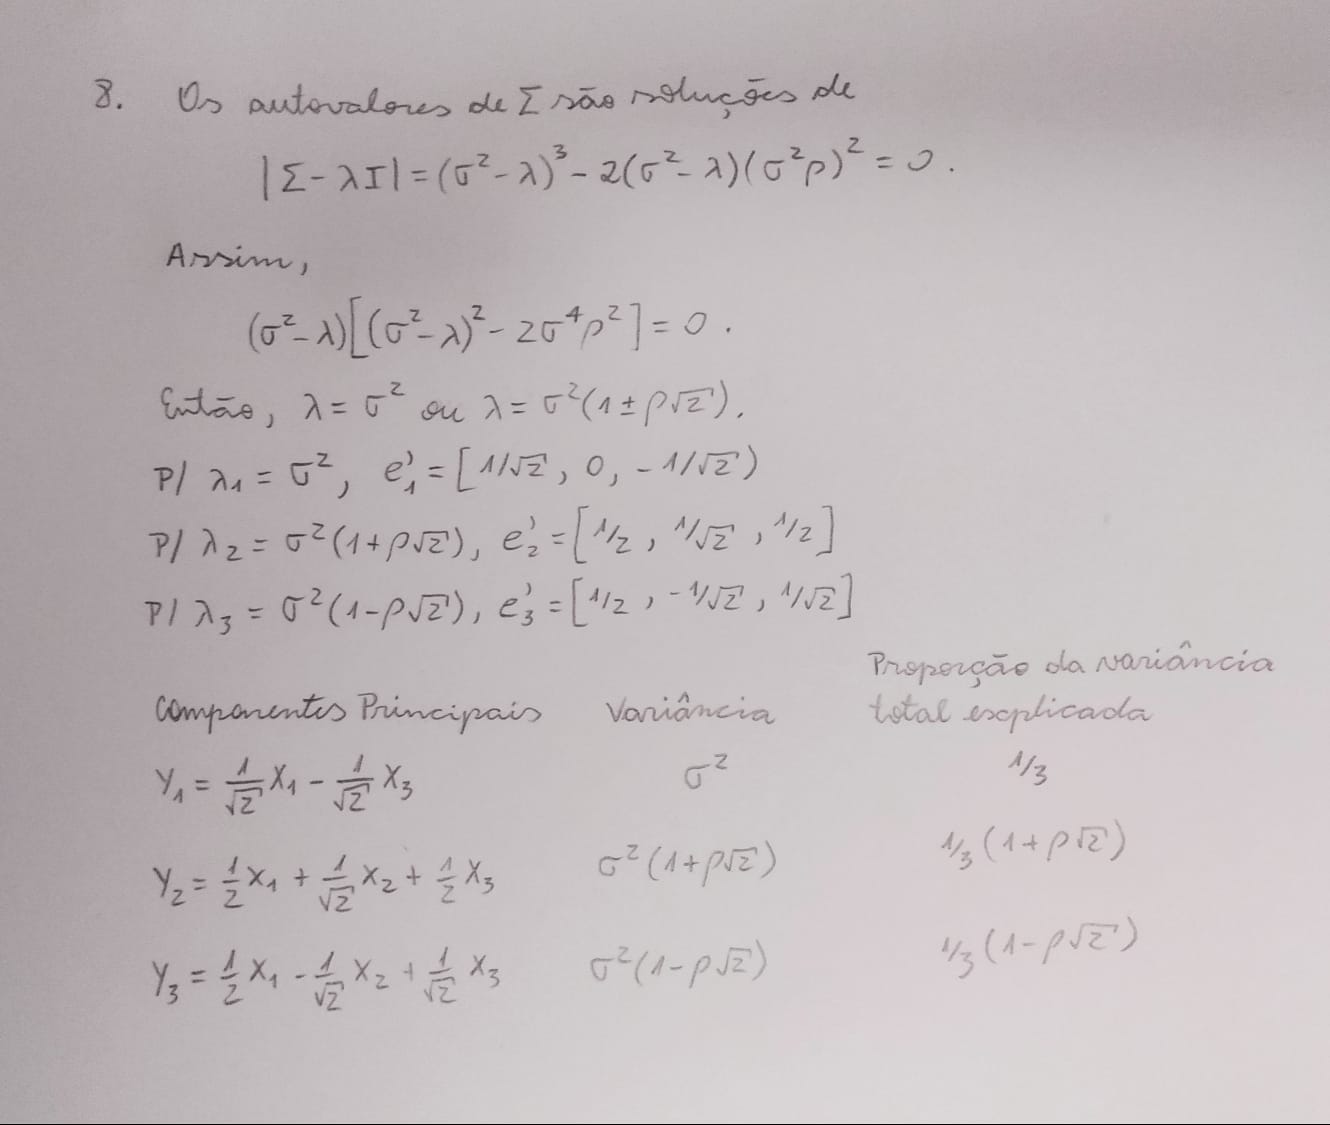 8. Os autovalores de Σ são soluções de
|Σ - λI| = (σ² - λ)³ - 2(σ² - λ)(σ²ρ)² = 0.
Assim,
(σ² - λ)[(σ² - λ)² - 2σ⁴ρ²] = 0.
Então, λ = σ² ou λ = σ²(1 ± ρ√2).
P/ λ₁ = σ², e₁' = [1/√2, 0, -1/√2)
P/ λ₂ = σ²(1+ρ√2), e₂' = [1/2, 1/√2, 1/2]
P/ λ₃ = σ²(1-ρ√2), e₃' = [1/2, -1/√2, 1/√2]
Proporção da variância
Componentes Principais Variância total explicada
Y₁ = 1/√2 X₁ - 1/√2 X₃ σ² 1/3
Y₂ = 1/2 X₁ + 1/√2 X₂ + 1/2 X₃ σ²(1+ρ√2) 1/3(1+ρ√2)
Y₃ = 1/2 X₁ - 1/√2 X₂ + 1/√2 X₃ σ²(1-ρ√2) 1/3(1-ρ√2)